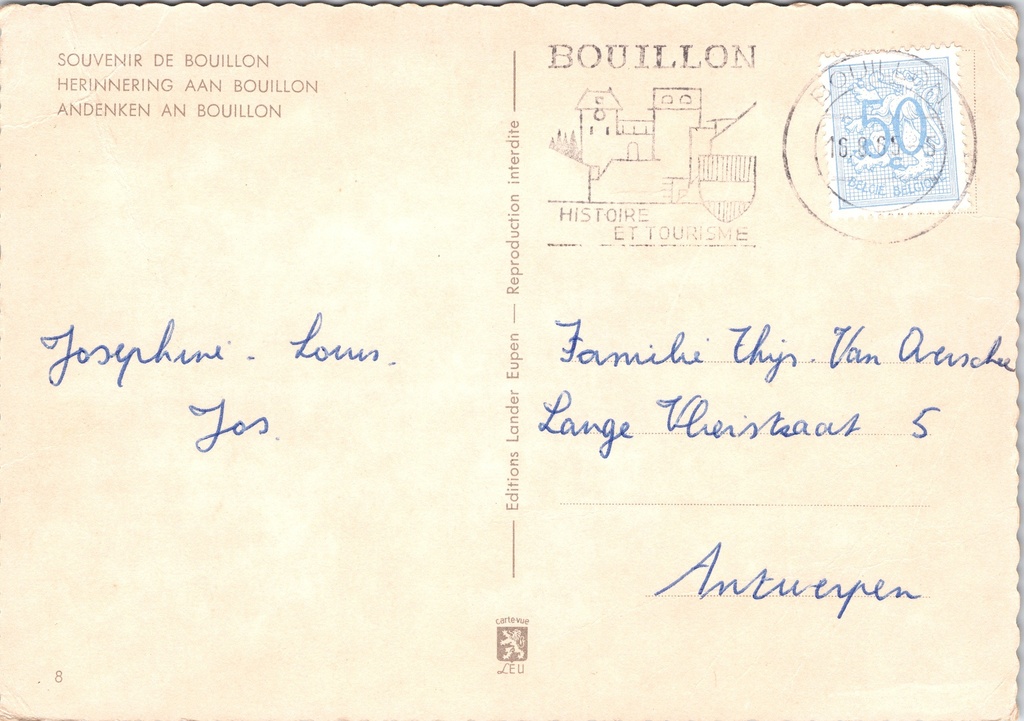 SOUVENIR DE BOUILLON
HERINNERING AAN BOUILLON
ANDENKEN AN BOUILLON
Josephine - Louis.
Jos.
8
Editions Lander Eupen — Reproduction interdite
carte vue
LEU
BOUILLON
HISTOIRE
ET TOURISME
BOUILLON
16.8.
50
BELGIË BELGIQUE
Familie Thijs. Van
Lange 5
Antwerpen